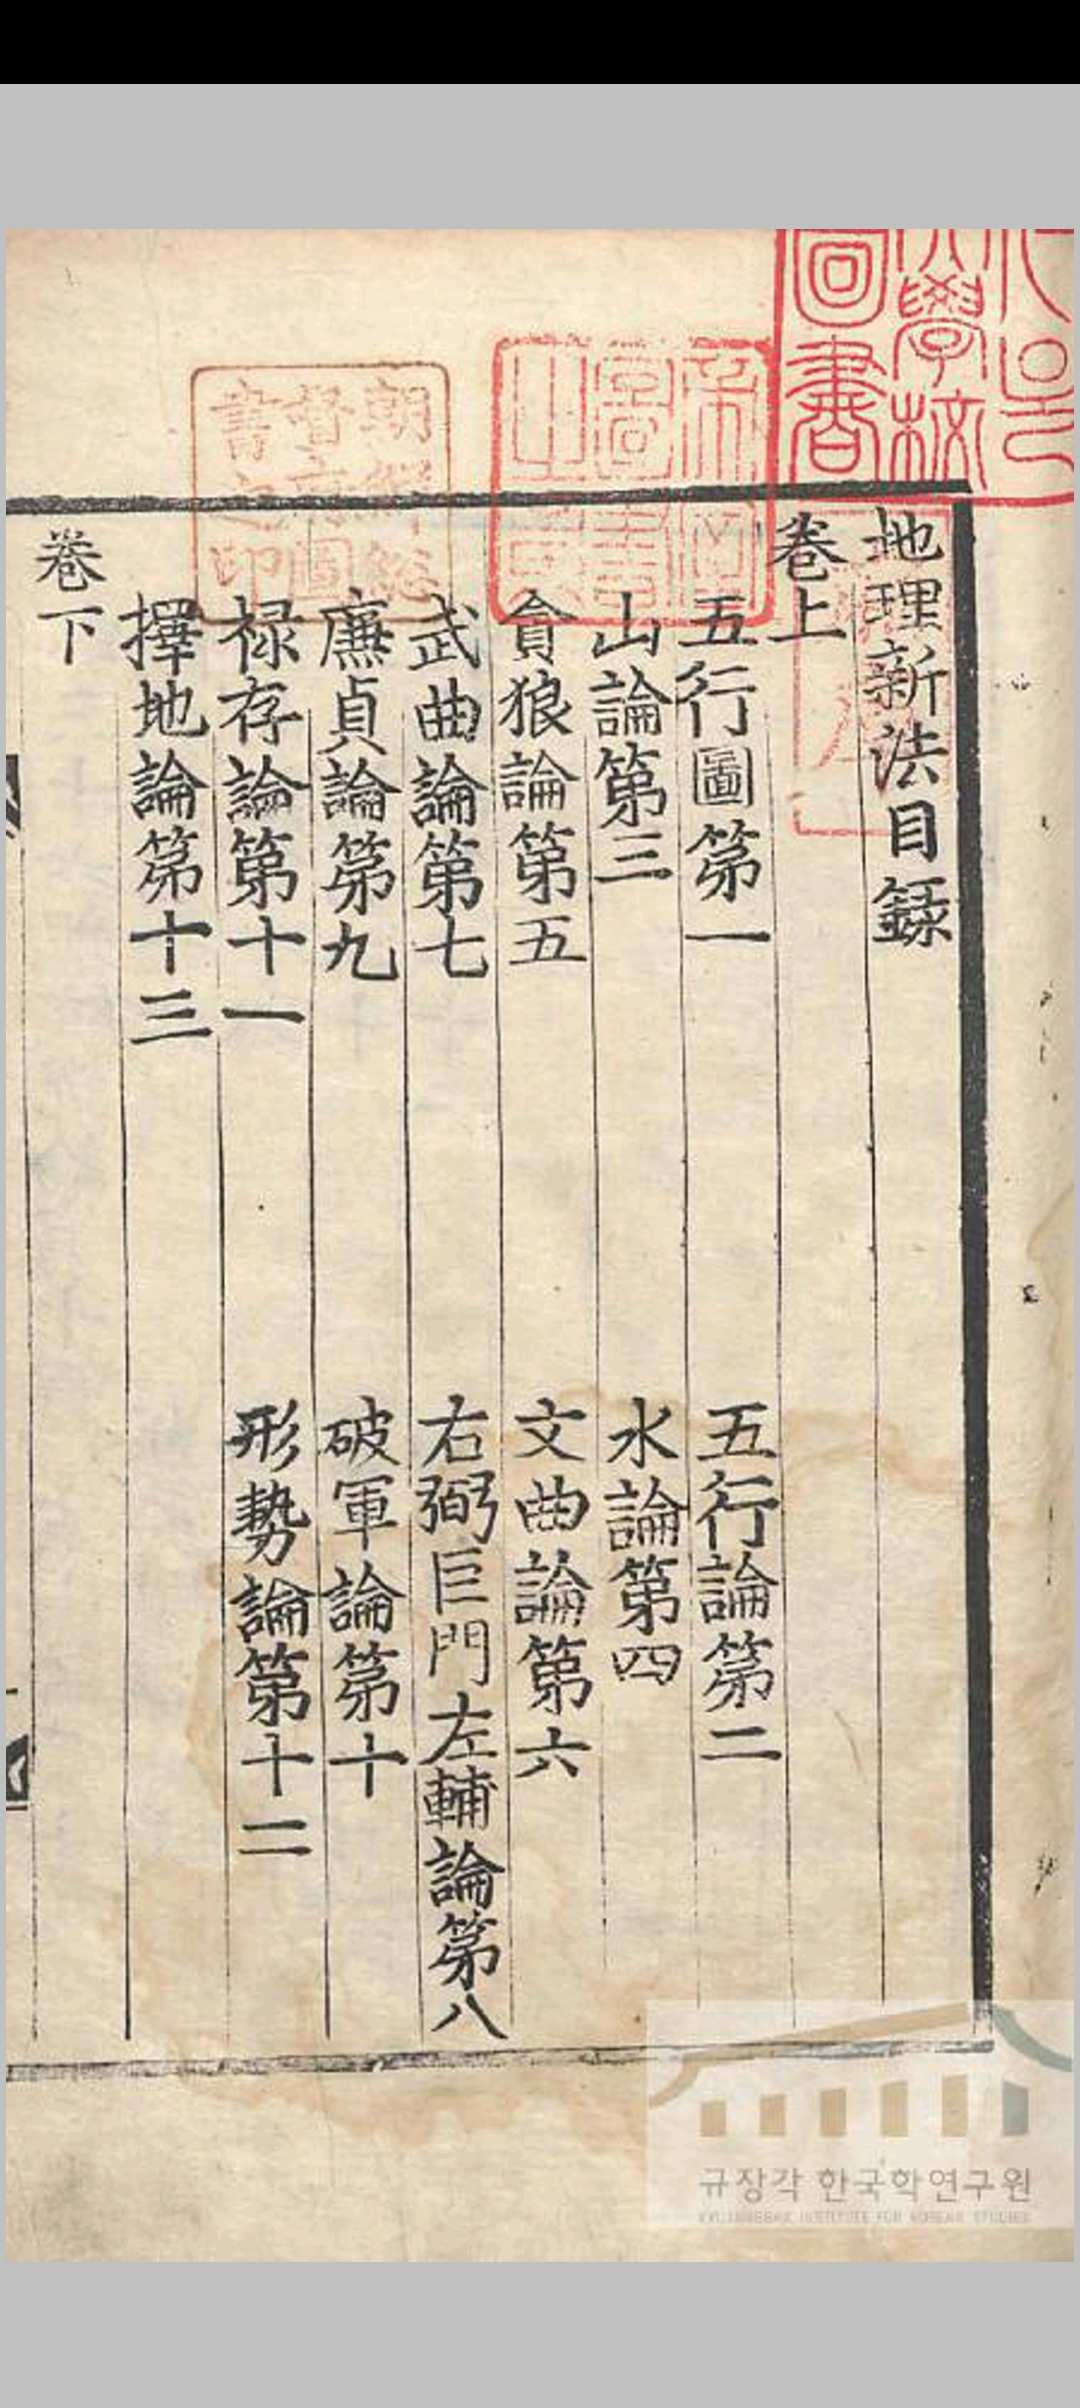 地理新法目録
卷上
五行圖第一
五行論第二
山論第三
水論第四
貪狼論第五
文曲論第六
武曲論第七
右弼巨門左輔論第八
廉貞論第九
破軍論第十
禄存論第十一
形勢論第十二
擇地論第十三
卷下
學校
圖書
帝國
圖書
朝鮮總
督府圖
書之印
규장각 한국학연구원
KYUJANGGAK INSTITUTE FOR KOREAN STUDIES